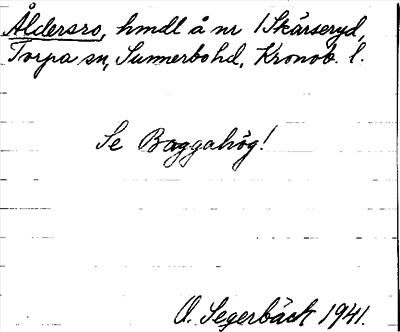 Åldersro, hmdl å nr 1 Skärseryd,
Torpa sn, Sunnerbo hd, Kronob. l.
Se Baggahög!
O. Segerbäck 1941.